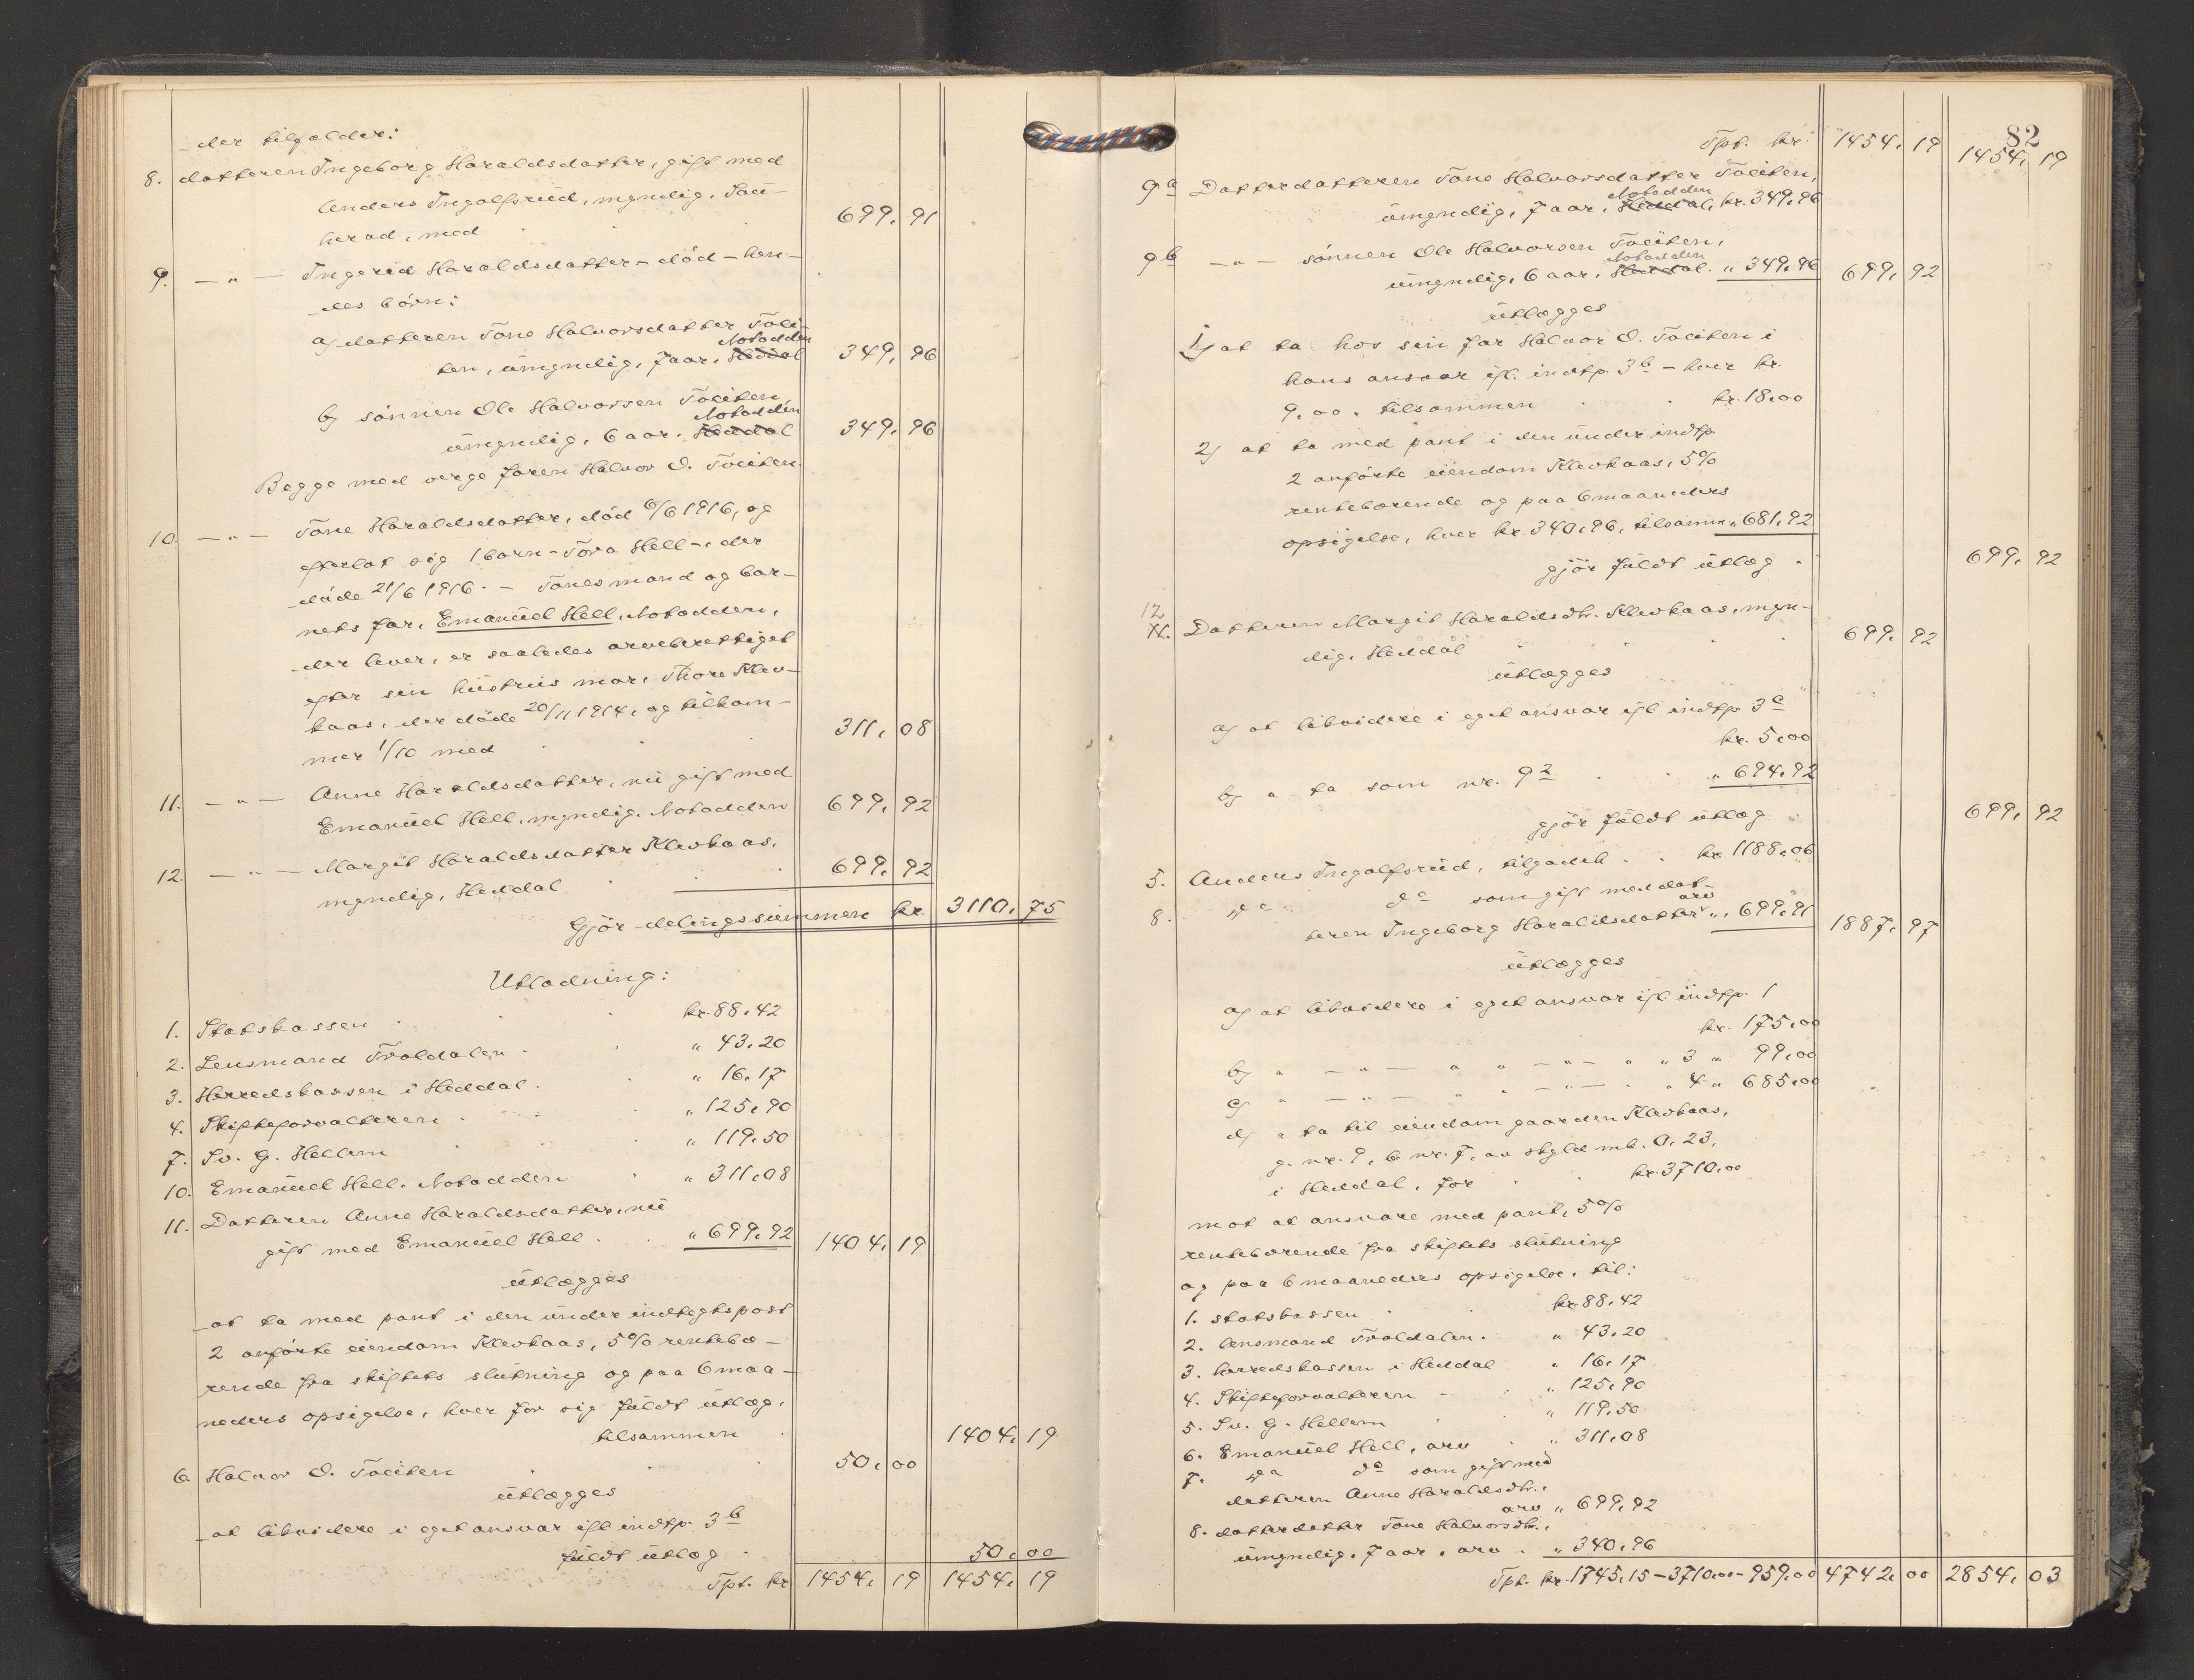 der tilfalder:
8. datteren Ingeborg Haraldsdatter, gift med
Anders Ingolfsrud, myndig, Sau-
herad, med 699,91
9. — " — Ingerid Haraldsdatter – död – hen-
des börn:
a) datteren Töne Halvorsdatter Toei-
ten, umyndig, 7 aar, Heddal Notodden 349,96
b) sönnen Ole Halvorsen Toeiten
umyndig, 6 aar. Heddal Notodden 349,96
Begge med verge faren Halvor O. Toeiten.
10. — " — Töne Haraldsdatter, död 6/6 1916, og
efterlot sig 1 barn – Tora Hell –, der
döde 21/6 1916. – Tönes mand og bar-
nets far, Emanuel Hell, Notodden,
der lever, er saaledes arveberettiget
efter sin hustrus mor, Thore Klev-
kaas, der döde 20/11 1914, og tilkom-
mer 1/10 med 311,08
11. — " — Anne Haraldsdatter, nu gift med
Emanuel Hell, myndig, Notodden 699,92
12. — " — Margit Haraldsdatter Klevkaas,
myndig, Heddal 699,92
Gjör delingssummen kr. 3110,75
Utlodning:
1. Statskassen kr. 88,42
2. Lensmand Traldalen " 43,20
3. Herredskassen i Heddal " 16,17
4. Skifteforvalteren " 125,90
7. Sv. G. Hellem " 119,50
10. Emanuel Hell, Notodden " 311,08
11. Datteren Anne Haraldsdatter, nu
gift med Emanuel Hell " 699,92 1404,19
utlægges
at ta med pant i den under indtegtspost
2 anförte eiendom Klevkaas, 5% rentebæ-
rende fra skiftets slutning og paa 6 maa-
neders opsigelse, hver for sig fuldt utlæg,
tilsammen 1404,19
6. Halvor O. Toeiten 50,00
utlægges
at likvidere i eget ansvar ifl. indtp. 3b
fuldt utlæg 50,00
Tpt. kr 1454,19 1454,19
82
Tpt. kr. 1454,19 1454,19
9a Datterdatteren Töne Halvorsdatter Toeiten,
umyndig, 7 aar, Heddal, Notodden kr. 349,96
9b — " — sönnen Ole Halvorsen Toeiten,
umyndig, 6 aar, Heddal. Notodden " 349,96 699,92
utlægges
1) at ta hos sin far Halvor O. Toeiten i
hans ansvar ifl. indtp. 3b – hver kr.
9,00, tilsammen kr. 18,00
2) at ta med pant i den under indtp.
2 anförte eiendom Klevkaas, 5%
rentebærende og paa 6 maaneders
opsigelse, hver kr. 340,96, tilsamm. " 681,92
gjör fuldt utlæg 699,92
12. 11. Datteren Margit Haraldsdtr. Klevkaas, myn-
dig, Heddal 699,92
utlægges
a) at likvidere i eget ansvar ifl. indtp. 3c
kr. 5,00
b) " ta som nr. 92 " 694,92
gjör fuldt utlæg 699,92
5. Anders Ingolfsrud, tilgodeh. kr 1188,06
8. Do do som gift med dat-
teren Ingeborg Haraldsdatter arv " 699,91 1887,97
utlægges
a) at likvidere i eget ansvar ifl. indtp. 1
kr. 175,00
b) " — " — " " — " — " " 3 " 99,00
c) " — " — " " — " — " " 4 " 685,00
d) " ta til eiendom gaarden Klevkaas,
g. nr. 9, b. nr. 7, av skyld mk. 0,23,
i Heddal, for kr. 3710,00
mot at ansvare med pant, 5%
rentebærende fra skiftets slutning
og paa 6 maaneders opsigelse, til:
1. statskassen kr. 88,42
2. lensmand Traldalen " 43,20
3. herredskassen i Heddal " 16,17
4. Skifteforvalteren " 125,90
5. Sv. G. Hellem " 119,50
6. Emanuel Hell, arv " 311,08
7. Do do som gift med
datteren Anne Haraldsdtr.,
arv " 699,92
8. datterdatter Töne Halvorsdtr.,
umyndig, 7 aar, arv " 340,96
Tpt. kr. 1745,15 – 3710,00 – 959,00 4742,00 2854,03